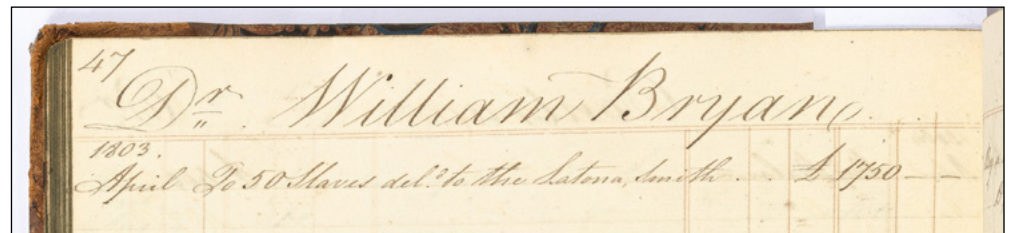 47
Dr. William Bryan
1803.
April To 50 Slaves deld. to the Latona, Smith. £ 1750 — —